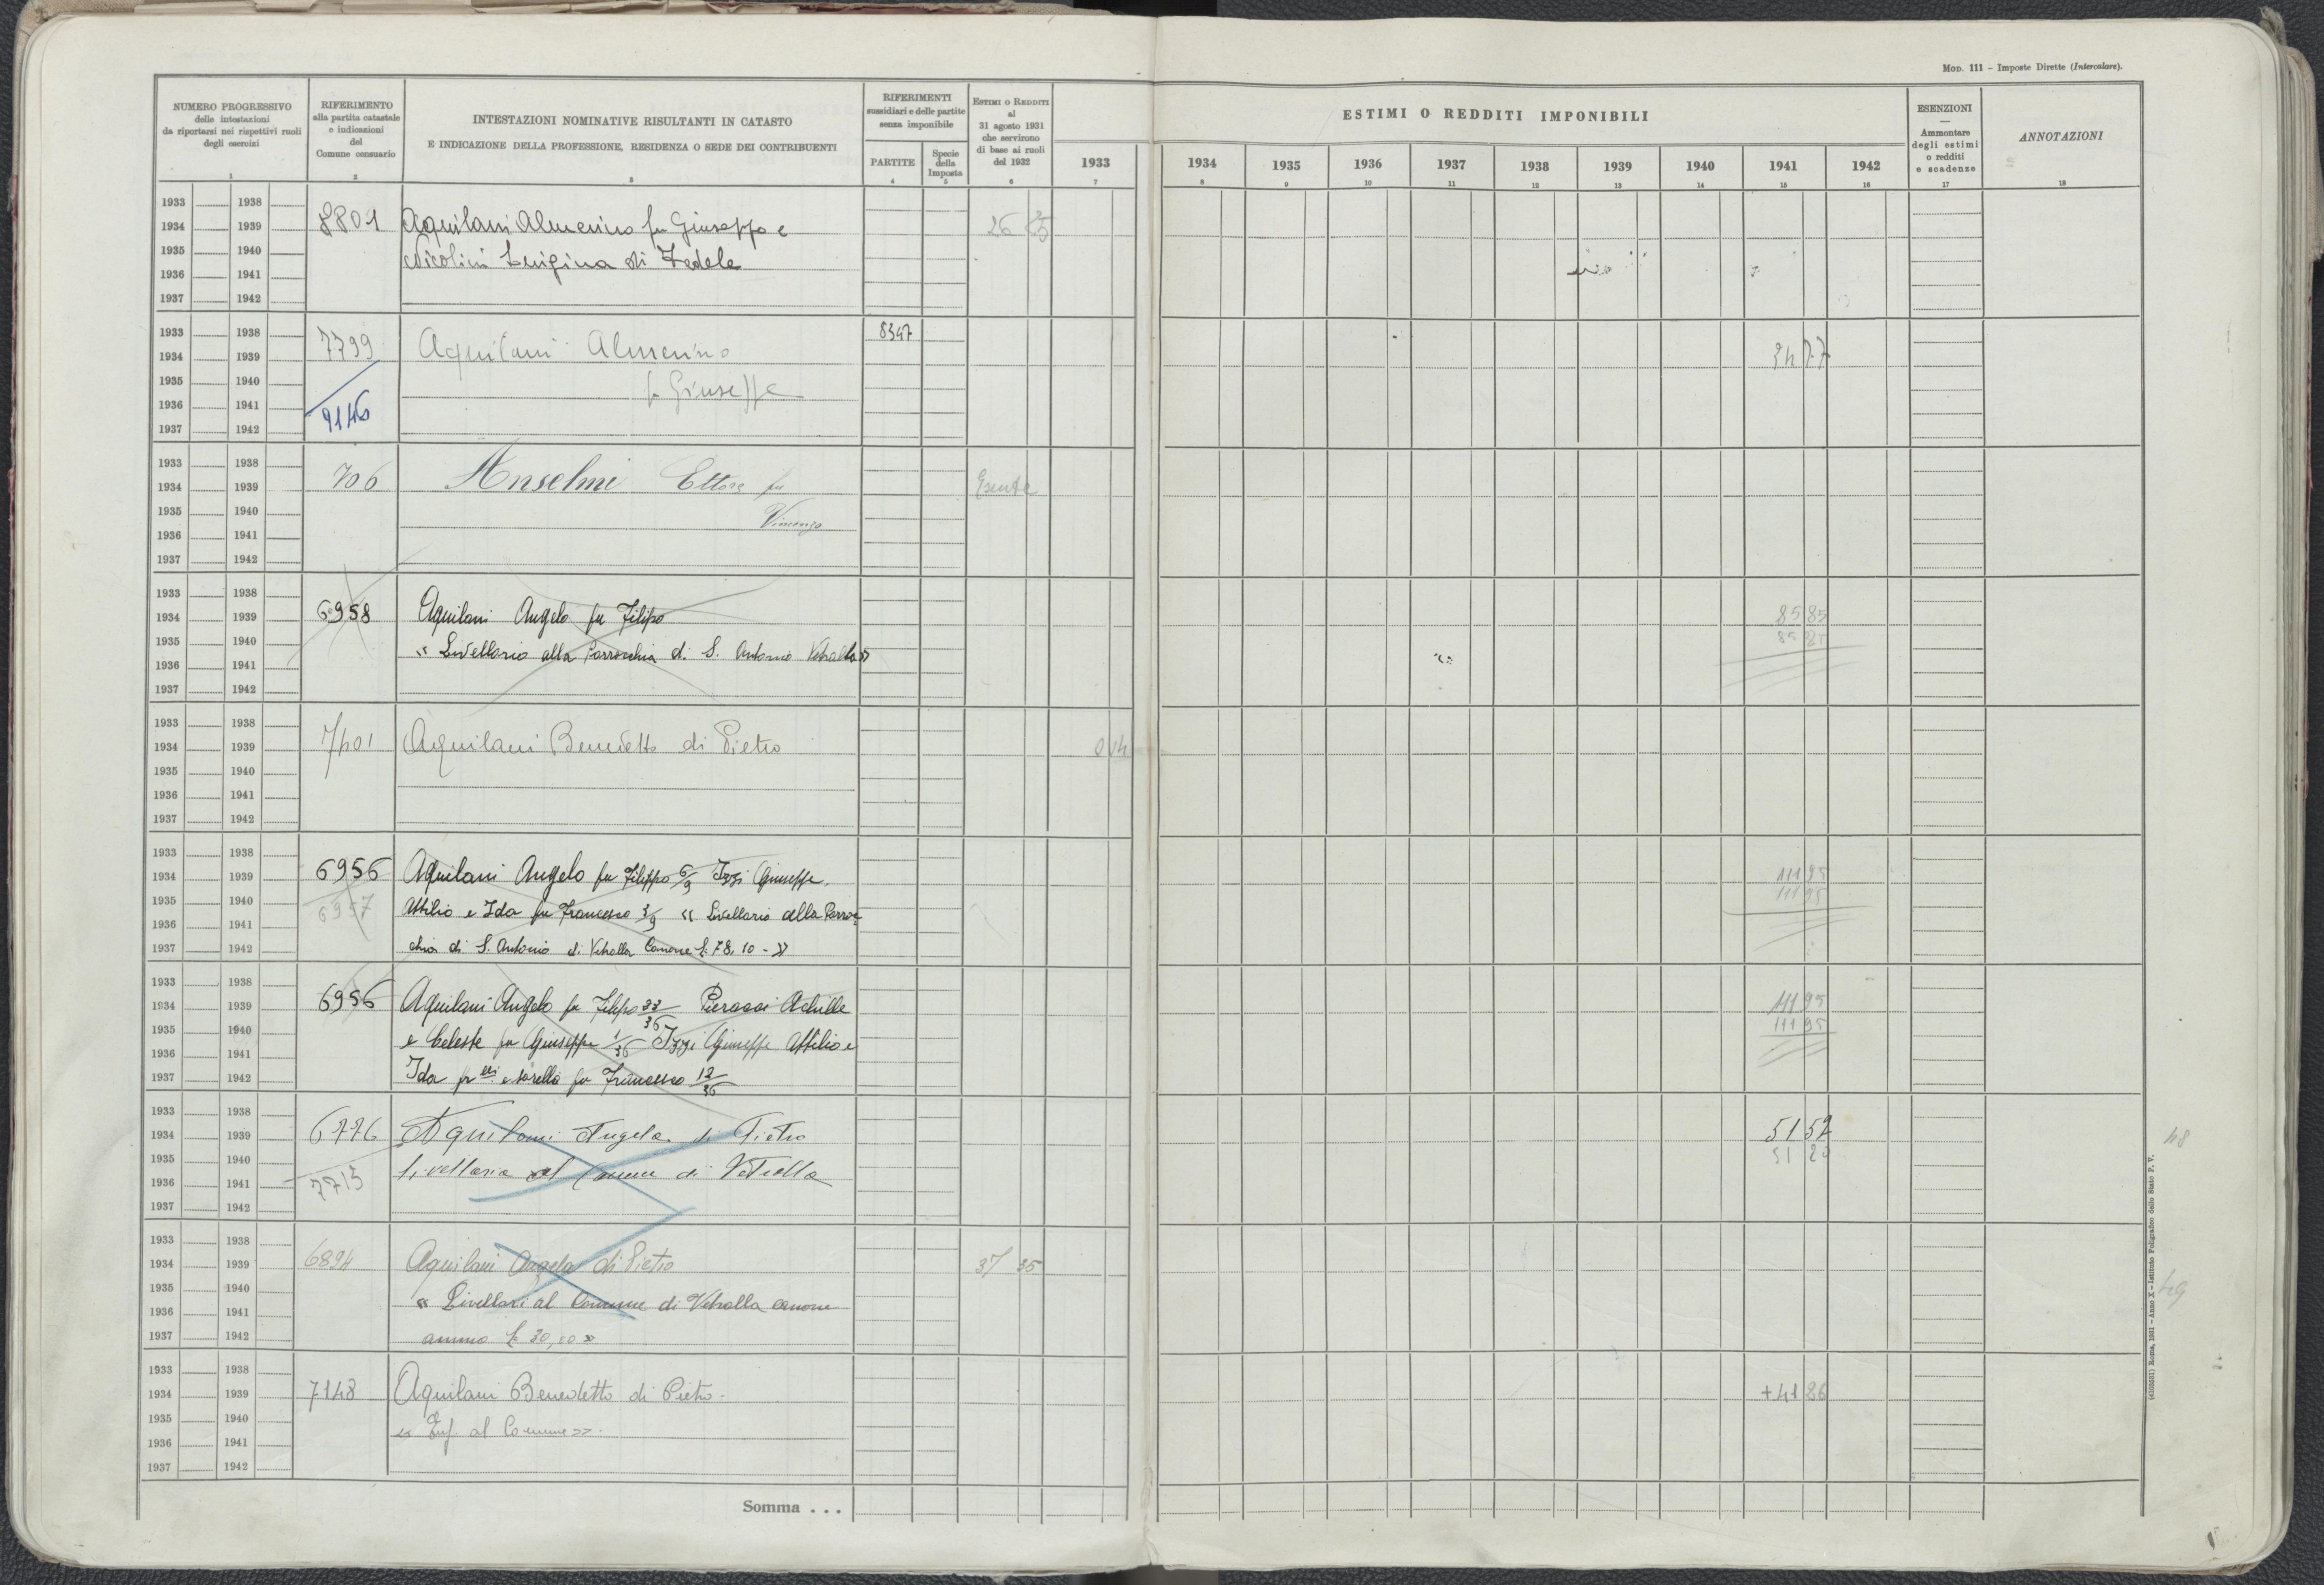 MOD. 111 – Imposte Dirette (Intercalare).
NUMERO PROGRESSIVO
delle intestazioni
da riportarsi nei rispettivi ruoli
degli esercizi
1
RIFERIMENTO
alla partita catastale
e indicazioni
del
Comune censuario
2
INTESTAZIONI NOMINATIVE RISULTANTI IN CATASTO
E INDICAZIONE DELLA PROFESSIONE, RESIDENZA O SEDE DEI CONTRIBUENTI
3
RIFERIMENTI
sussidiari e delle partite
senza imponibile
PARTITE
4
Specie
della
Imposta
5
ESTIMI O REDDITI
al
31 agosto 1931
che servirono
di base ai ruoli
del 1932
6
ESTIMI O REDDITI IMPONIBILI
1933 1934 1935 1936 1937 1938 1939 1940 1941 1942
7 8 9 10 11 12 13 14 15 16
ESENZIONI
—
Ammontare
degli estimi
o redditi
e scadenze
17
ANNOTAZIONI
18
1933 1938
1934 1939 8801 Aquilani Almerino fu Giuseppe e 26
1935 1940 Nicolini Luigina di Fedele
1936 1941
1937 1942
1933 1938 7799 Aquilani Almerino 8347
1934 1939
1935 1940 fu Giuseppe
1936 1941 9146
1937 1942
1933 1938
1934 1939 706 Anselmi Ettore fu Esente
1935 1940 Vincenzo
1936 1941
1937 1942
1933 1938
1934 1939 6958 Aquilani Angelo fu Filipo 85 85
1935 1940 « Livellario alla Parrochia di S. Antonio Vetralla » 85 85
1936 1941
1937 1942
1933 1938
1934 1939 7401 Aquilani Benedetto di Pietro 0 14
1935 1940
1936 1941
1937 1942
1933 1938
1934 1939 6956 Aquilani Angelo fu Filippo 6/9 Izzi Giuseppe, 111 95
1935 1940 6957 Attilio e Ida fu Francesco 3/9 « Livellario alla Parroc 111 95
1936 1941
1937 1942 chia di S. Antonio di Vetralla Canone L. 78,10 - »
1933 1938
1934 1939 6956 Aquilani Angelo fu Filipo 23/36 Achille 111 95
1935 1940 e Celeste fu Giuseppe 1/36 Izzi Giuseppe Attilio e 111 95
1936 1941
1937 1942 Ida fr.lli e sorella fu Francesco 12/36
1933 1938
1934 1939 6776 Aquilani Angela di Pietro 51 52
1935 1940 livellaria al Comune di Vetralla 51 20
1936 1941 7715
1937 1942
48
1933 1938
1934 1939 6894 Aquilani Angela di Pietro 37 35
1935 1940 « Livellari al Comune di Vetralla canone
1936 1941
1937 1942 annuo L. 30,00 »
49
1933 1938
1934 1939 7148 Aquilani Benedetto di Pietro - + 41 86
1935 1940 « Enf. al Comune ».
1936 1941
1937 1942
Somma . . .
Roma, 1931 – Anno X – Istituto Poligrafico dello Stato P. V.